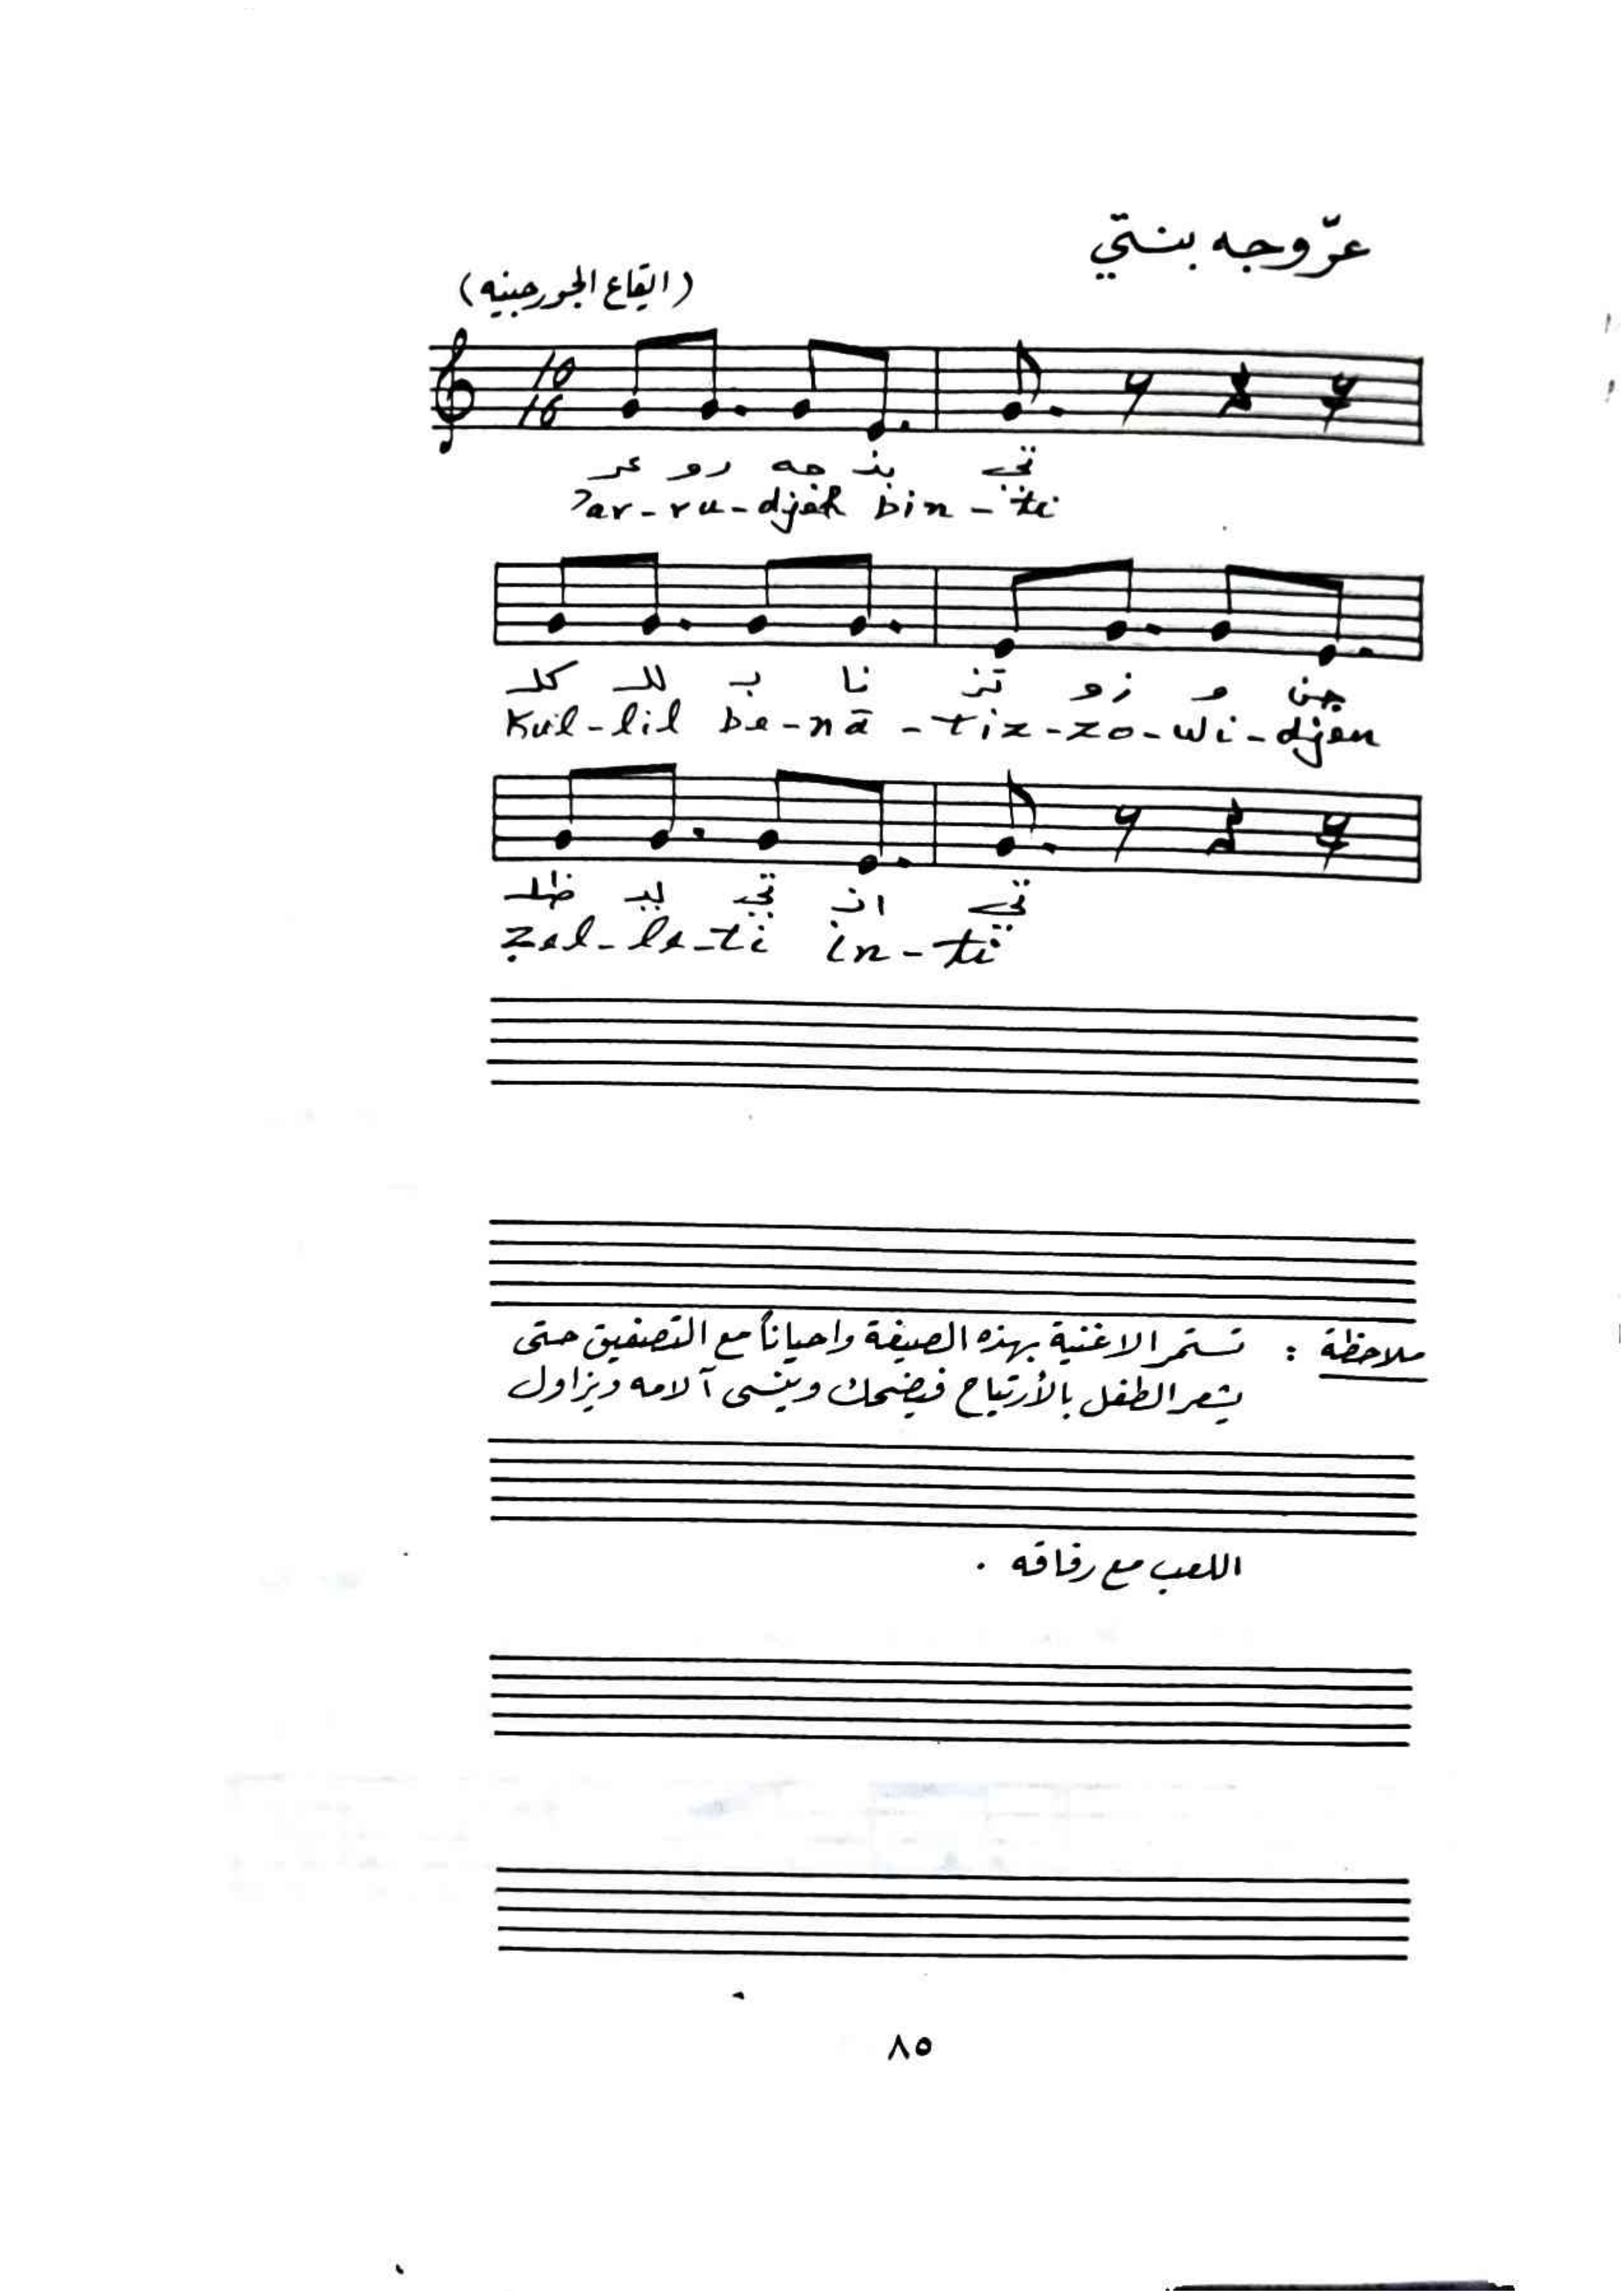 عرّوجه بنتي
(ايقاع الجورجينه)
10
16
عر رو جه بنـ تي
?ar-ru-djeh bin-ti
كلـ للـ بـ نا تز زو و جن
Kul-lil be-nā-tiz-zo-wi-djen
ظلـ ليـ تي انـ تي
zel-le-ti in-ti
ملاحظة : تستمر الاغنية بهذه الصيغة واحياناً مع التصفيق حتى
يشعر الطفل بالأرتياح فيضحك وينسى آلامه ويزاول
اللعب مع رفاقه .
٨٥